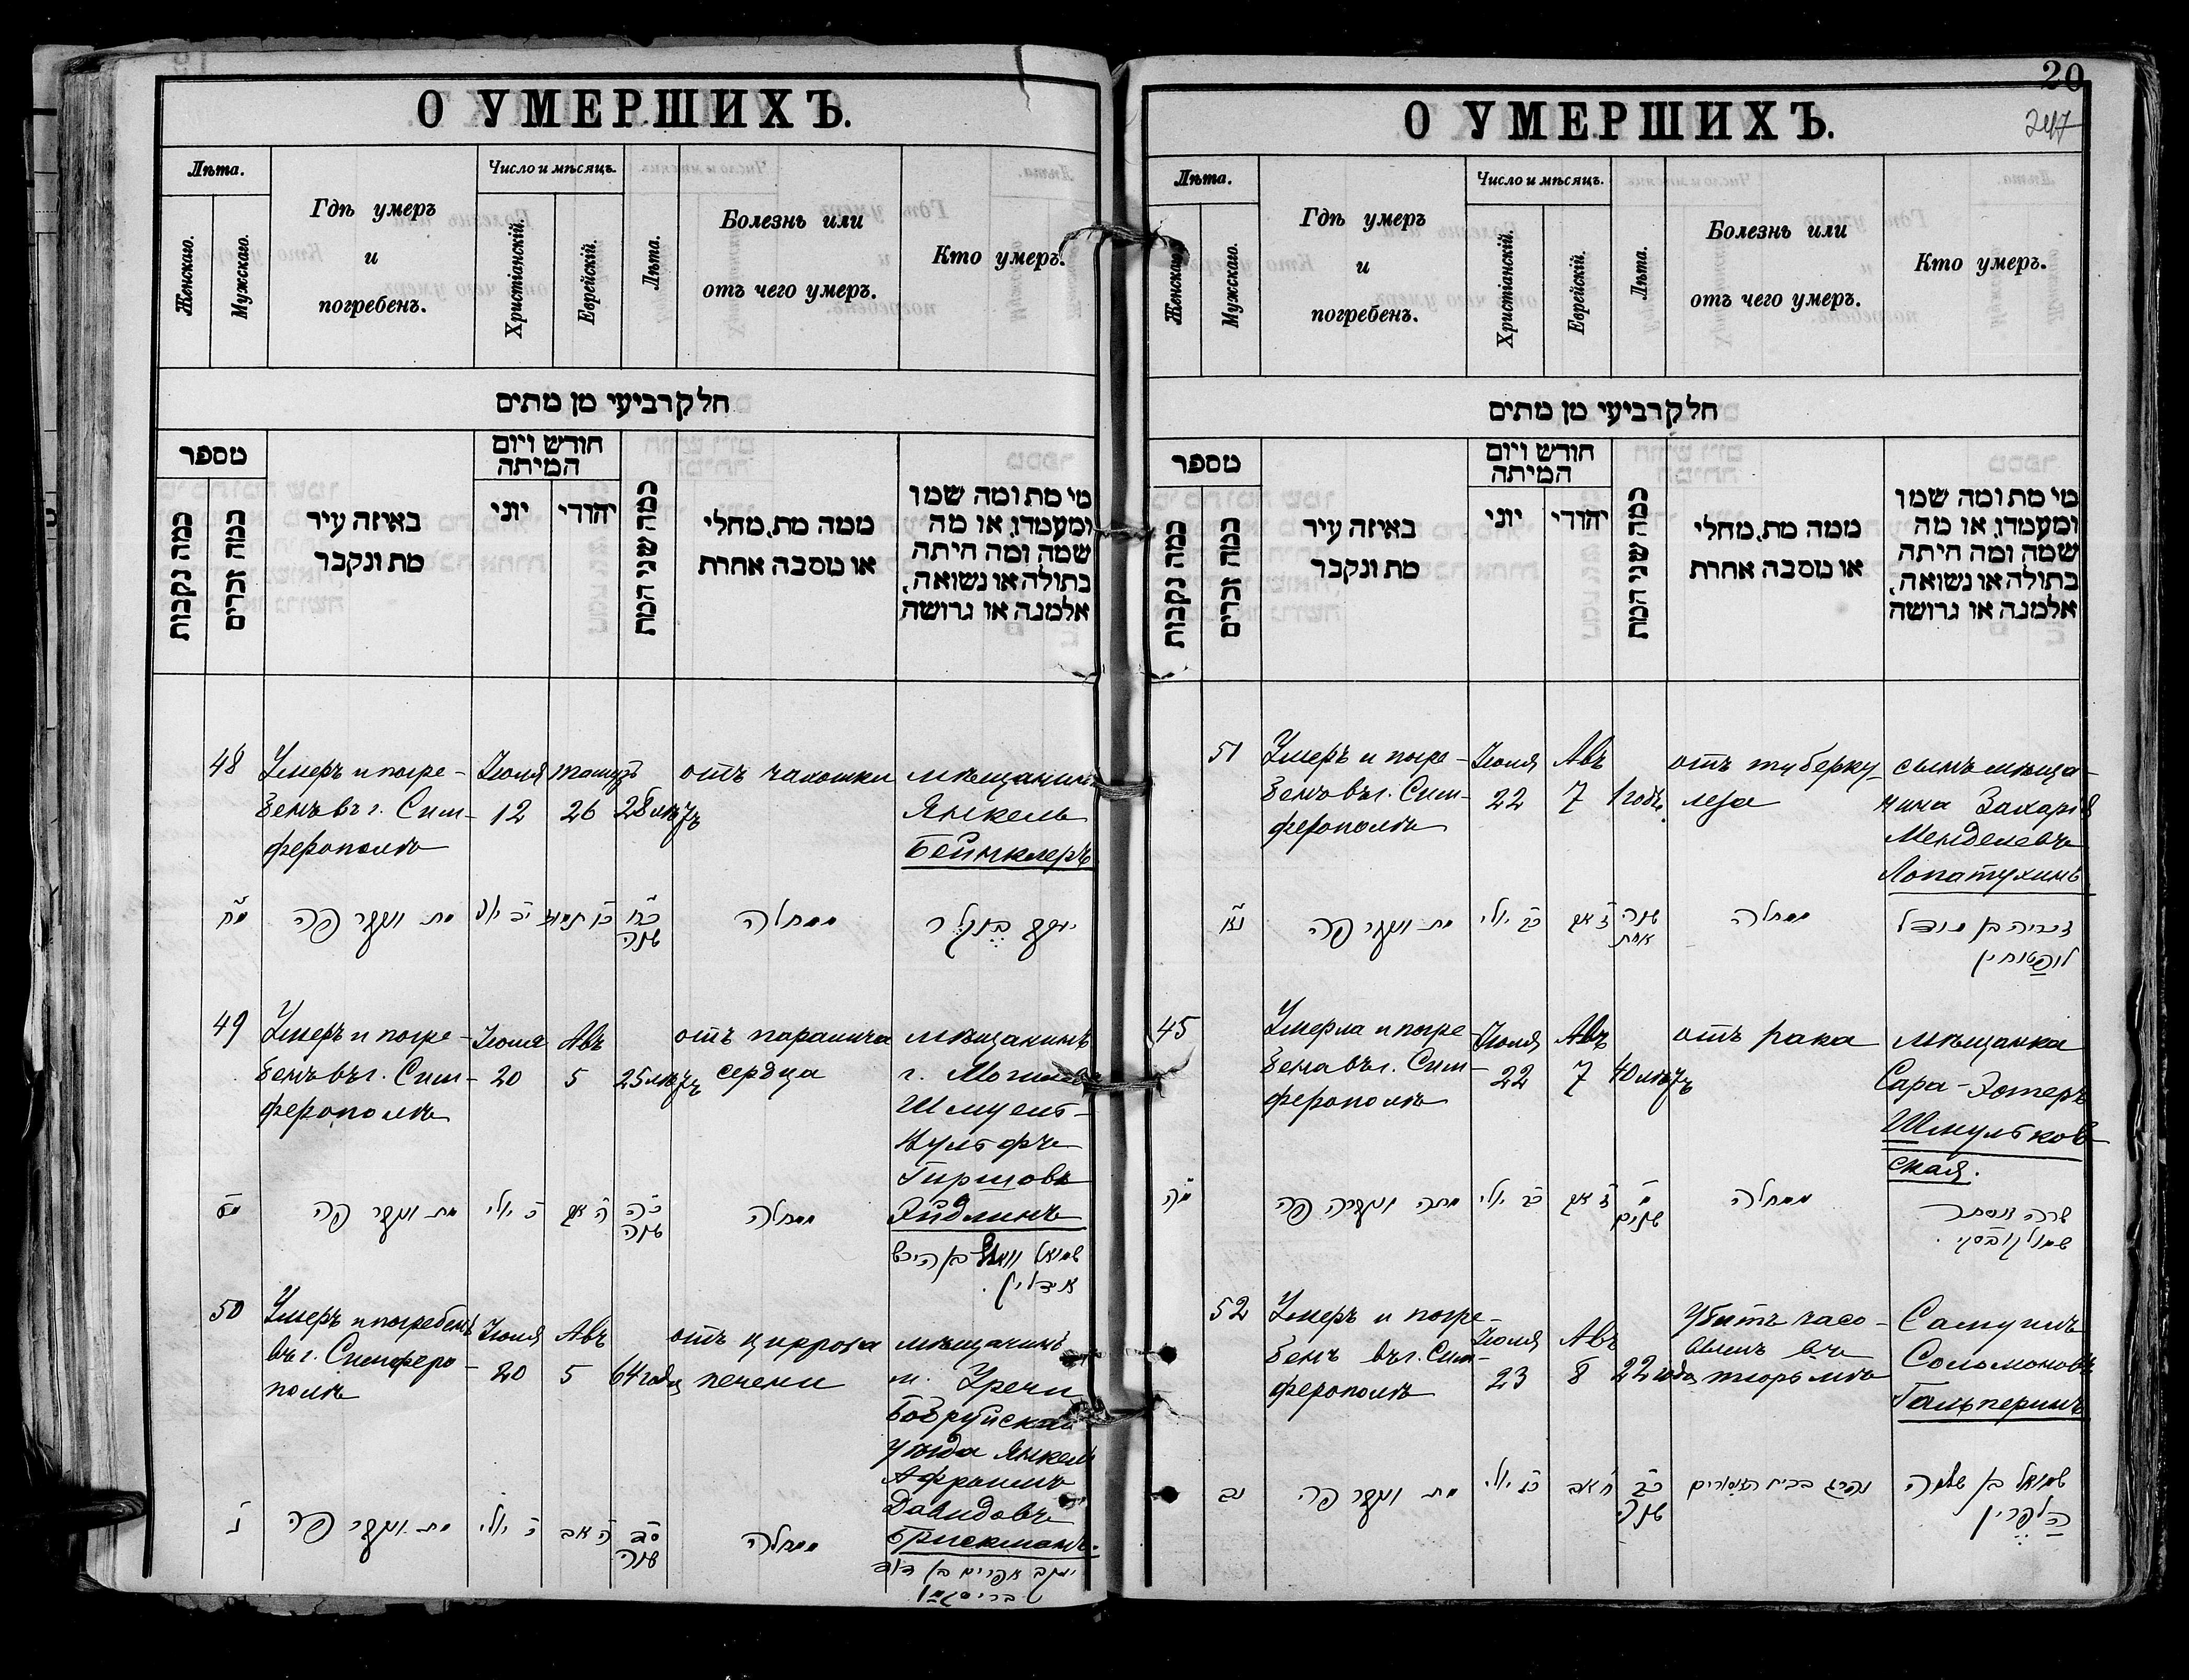 О УМЕРШИХЪ.
Лѣта.
Женскаго.
Мужскаго.
Гдѣ умеръ
и
погребенъ.
Число и мѣсяцъ.
Христіанскій.
Еврейскій.
Лѣта.
Болезнь или
отъ чего умеръ.
Кто умеръ.
חלק רביעי מן מתים
מספר
כמה נקבות
כמה זכרים
באיזה עיר
מת ונקבר
חודש ויום
המיתה
יוני
יהודי
כמה שני המת
ממה מת, מחלי
או מסבה אחרת
מי מת ומה שמו
ומעמדו, או מה
שמה ומה היתה
בתולה או נשואה,
אלמנה או גרושה
48
Умеръ и погре-
бенъ въ г. Сим-
ферополѣ
Іюля
12
Тамузъ
26
28 лѣтъ
отъ чахотки
мѣщанинъ
Янкель
Бейнклеръ
מח
מת ונקבר פה
יב יולי
כו תמוז
כח
שנה
ממחלה
יעקב
49
Умеръ и погре-
бенъ въ г. Сим-
ферополѣ
Іюля
20
Авъ
5
25 лѣтъ
отъ паралича
сердца
мѣщанинъ
г. Могилева
Шмуель-
Вульфъ
Гиршовъ
Айдлинъ
מט
מת ונקבר פה
כ יולי
ה אב
כה
שנה
ממחלה
שמואל בן הירש
אידלין.
50
Умеръ и погребенъ
въ г. Симферо-
полѣ
Іюля
20
Авъ
5
64 года
отъ цирроза
печени
мѣщанинъ
м. Уречи
Бобруйскаго
уѣзда Янкель
Афроимъ
Давидовъ
Брискманъ.
נ
מת ונקבר פה
כ יולי
ה אב
שנה
ממחלה
יעקב אפרים בן דוד
בריסקמן
20
247
О УМЕРШИХЪ.
Лѣта.
Женскаго.
Мужскаго.
Гдѣ умеръ
и
погребенъ.
Число и мѣсяцъ.
Христіанскій.
Еврейскій.
Лѣта.
Болезнь или
отъ чего умеръ.
Кто умеръ.
חלק רביעי מן מתים
מספר
כמה נקבות
כמה זכרים
באיזה עיר
מת ונקבר
חודש ויום
המיתה
יוני
יהודי
כמה שני המת
ממה מת, מחלי
או מסבה אחרת
מי מת ומה שמו
ומעמדו, או מה
שמה ומה היתה
בתולה או נשואה,
אלמנה או גרושה
51
Умеръ и погре-
бенъ въ г. Сим-
ферополѣ
Іюля
22
Авъ
7
1 годъ.
отъ туберку-
леза
сынъ мѣща-
нина Захарія
Менделевъ
Лопатухинъ
נא
מת ונקבר פה
כב יולי
ז אב
שנה
אחת
ממחלה
זכריה בן מנדל
לופטוחין
45
Умерла и погре-
бена въ г. Сим-
ферополѣ
Іюля
22
Авъ
7
40 лѣтъ
отъ рака
мѣщанка
Сара-Эстеръ
Шмульков-
ская.
מה
מתה ונקברה פה
כב יולי
ז אב
מ
שנים
ממחלה
שרה אסתר
שמולקובסקי.
52
Умеръ и погре-
бенъ въ г. Сим-
ферополѣ
Іюля
23
Авъ
8
22 года
Убитъ часо-
вымъ въ
тюрьмѣ
Самуилъ
Соломоновъ
Гальперинъ
נב
מת ונקבר פה
כג יולי
ח אב
כב
שנה
נהרג בבית האסורים
שמואל בן שלמה
הלפרין